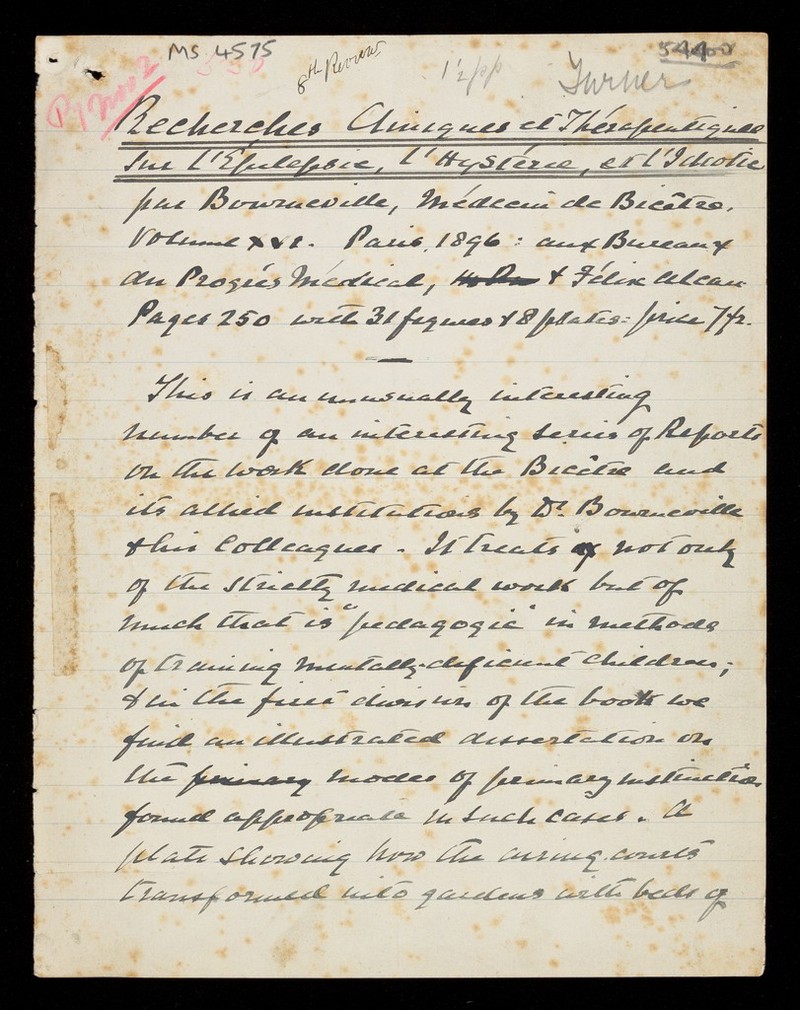 MS. 4575
8th Review
1 1/2 pp
54400
Turner
Recherches Cliniques et Thérapeutiques
sur l'Épilepsie, l'Hystérie, et l'Idiotie
par Bourneville, Médecin de Bicêtre.
Volume xvi. Paris, 1896: aux Bureaux
du Progrès Médical, & Félix Alcan
Pages 250 with 31 figures & 8 plates: price 7 fr.
This is an unusually interesting
number of an interesting series of Reports
on the work done at the Bicêtre and
its allied institutions by Dr. Bourneville
& his Colleagues. It treats of not only
of the strictly medical work but of
much that is "pedagogic" in methods
of training mentally-deficient children;
& in the first division of the book we
find an illustrated dissertation on
the primary modes of primary instruction
found appropriate in such cases. A
plate showing how the airing courts
transformed into gardens with beds of